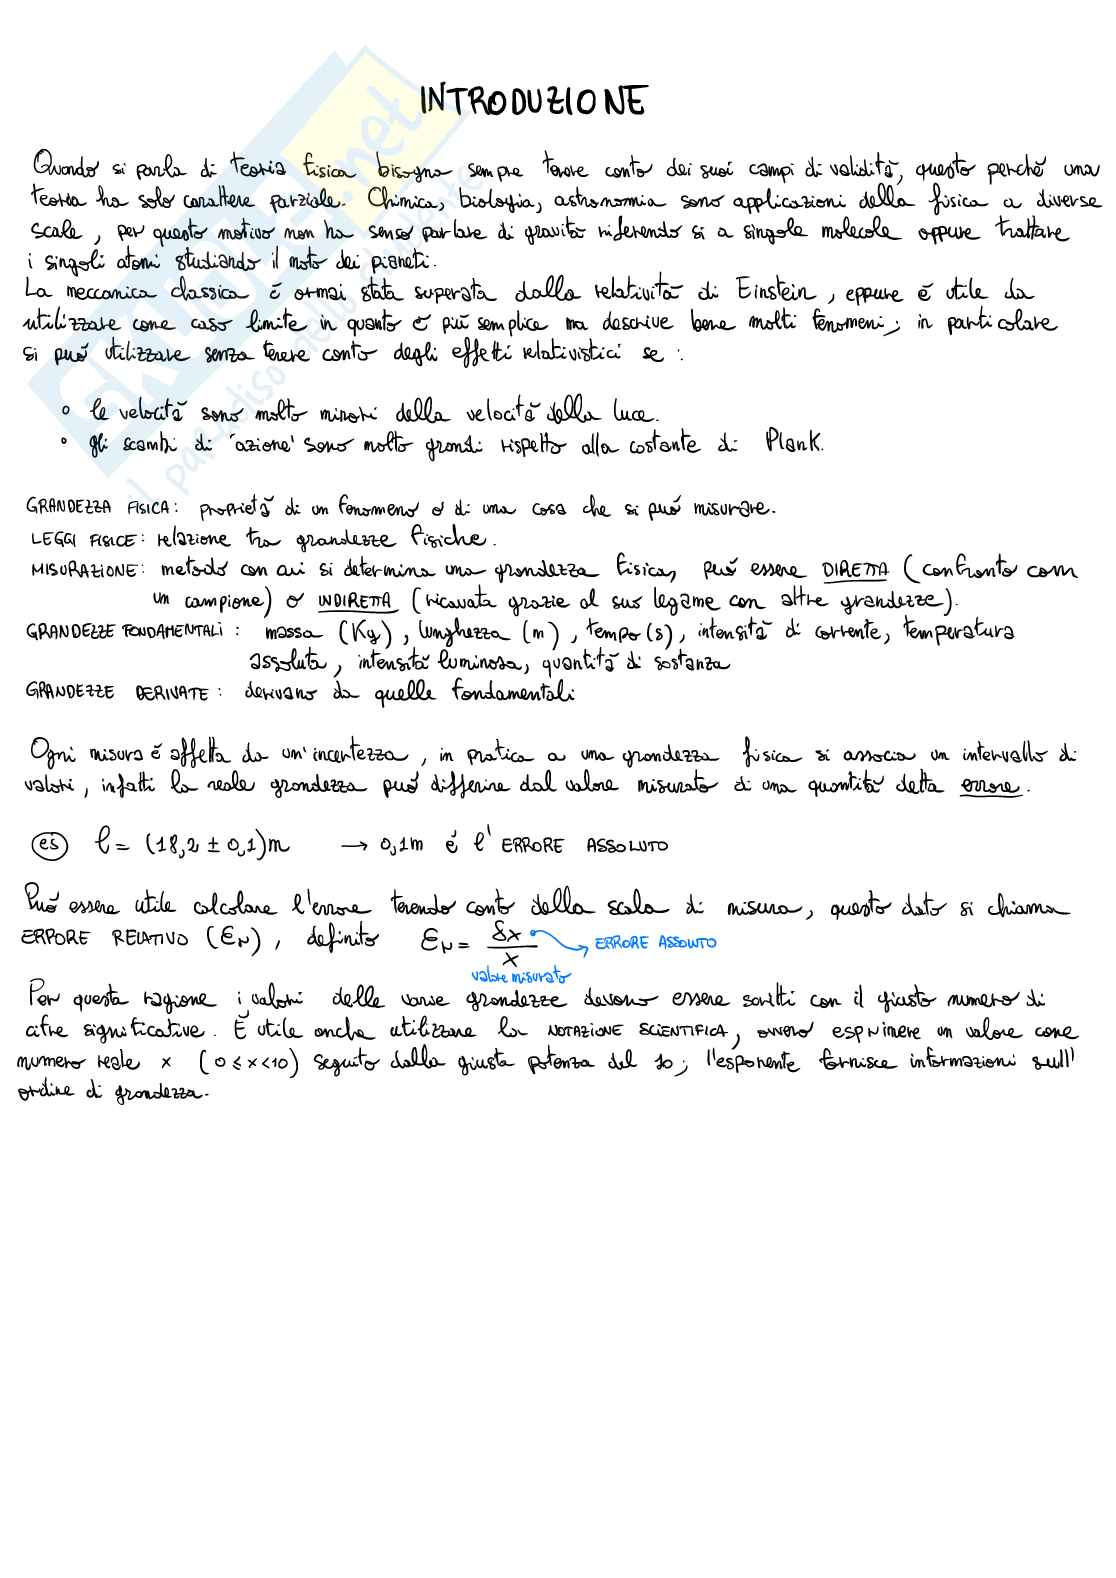 INTRODUZIONE
Quando si parla di teoria fisica bisogna sempre tenere conto dei suoi campi di validità, questo perché una
teoria ha solo carattere parziale. Chimica, biologia, astronomia sono applicazioni della fisica a diverse
scale, per questo motivo non ha senso parlare di gravità riferendo si a singole molecole oppure trattare
i singoli atomi studiando il moto dei pianeti.
La meccanica classica è ormai stata superata dalla relatività di Einstein, eppure è utile da
utilizzare come caso limite in quanto è più semplice ma descrive bene molti fenomeni; in particolare
si può utilizzare senza tenere conto degli effetti relativistici se :
° le velocità sono molto minori della velocità della luce.
° gli scambi di 'azione' sono molto grandi rispetto alla costante di Plank.
GRANDEZZA FISICA: proprietà di un fenomeno o di una cosa che si può misurare.
LEGGI FISICE: relazione tra grandezze fisiche.
MISURAZIONE: metodo con cui si determina una grandezza fisica, può essere DIRETTA (confronto com
un campione) o INDIRETTA (ricavata grazie al suo legame con altre grandezze).
GRANDEZZE FONDAMENTALI: massa (Kg), lunghezza (m), tempo (s), intensità di corrente, temperatura
assoluta, intensità luminosa, quantità di sostanza
GRANDEZZE DERIVATE: derivano da quelle fondamentali
Ogni misura è affetta da un'incertezza, in pratica a una grandezza fisica si associa un intervallo di
valori, infatti la reale grandezza può differire dal valore misurato di una quantità detta errore.
es l = (18,2 ± 0,1)m → 0,1m è l'ERRORE ASSOLUTO
Può essere utile calcolare l'errore tenendo conto della scala di misura, questo dato si chiama
ERRORE RELATIVO (εr), definito εr = δx / x → ERRORE ASSOLUTO
valore misurato
Per questa ragione i valori delle varie grandezze devono essere scritti con il giusto numero di
cifre significative. È utile anche utilizzare la NOTAZIONE SCIENTIFICA, ovvero esprimere un valore come
numero reale x (0 ≤ x < 10) seguito dalla giusta potenza del 10; l'esponente fornisce informazioni sull'
ordine di grandezza.